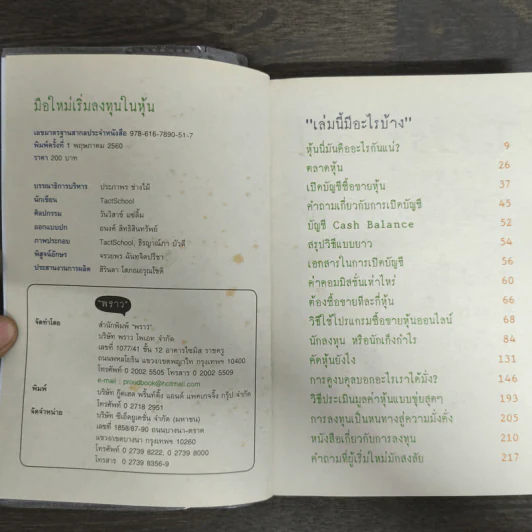 มือใหม่เริ่มลงทุนในหุ้น
เลขมาตรฐานสากลประจำหนังสือ 978-616-7890-51-7
พิมพ์ครั้งที่ 1 พฤษภาคม 2560
ราคา 200 บาท
บรรณาธิการบริหาร ประภาพร ช่างไม้
นักเขียน TactSchool
ศิลปกรรม วันวิสาข์ แซ่ลิ้ม
ออกแบบปก อนงค์ สิทธิสินทรัพย์
ภาพประกอบ TactSchool, ธิรญาณีภา มัวดี
พิสูจน์อักษร จรวยพร ฉันทจิตปรีชา
ประสานงานการผลิต สิรินดา โสภณอรุณโชติ
"พราว"
จัดทำโดย สำนักพิมพ์ "พราว"
บริษัท พราว โพเอท จำกัด
เลขที่ 1077/41 ชั้น 12 อาคารไซมีส ราชครู
ถนนพหลโยธิน แขวง/เขตพญาไท กรุงเทพฯ 10400
โทรศัพท์ 0 2002 5508 โทรสาร 0 2002 5509
e-mail : proudbook@hotmail.com
พิมพ์ บริษัท กู๊ดเฮด พริ้นท์ติ้ง แอนด์ แพคเกจจิ้ง กรุ๊ป จำกัด
โทรศัพท์ 0 2718 2951
จัดจำหน่าย บริษัท ซีเอ็ดยูเคชั่น จำกัด (มหาชน)
เลขที่ 1858/67-90 ถนนบางนา-ตราด
แขวง/เขตบางนา กรุงเทพฯ 10260
โทรศัพท์ 0 2739 8222, 0 2739 8000
โทรสาร 0 2739 8356-9
"เล่มนี้มีอะไรบ้าง"
หุ้นนี่มันคืออะไรกันแน่? 9
ตลาดหุ้น 26
เปิดบัญชีซื้อขายหุ้น 37
คำถามเกี่ยวกับการเปิดบัญชี 45
บัญชี Cash Balance 52
สรุปวิธีแบบยาว 54
เอกสารในการเปิดบัญชี 56
ค่าคอมมิสชั่นเท่าไหร่ 60
ต้องซื้อขายทีละกี่หุ้น 66
วิธีใช้โปรแกรมซื้อขายหุ้นออนไลน์ 68
นักลงทุน หรือนักเก็งกำไร 84
คัดหุ้นยังไง 131
การดูงบดุลบอกอะไรเราได้มั่ง? 146
วิธีประเมินมูลค่าหุ้นแบบขุ่ยสุดๆ 193
การลงทุนเป็นหนทางสู่ความมั่งคั่ง 205
หนังสือเกี่ยวกับการลงทุน 210
คำถามที่ผู้เริ่มใหม่มักสงสัย 217